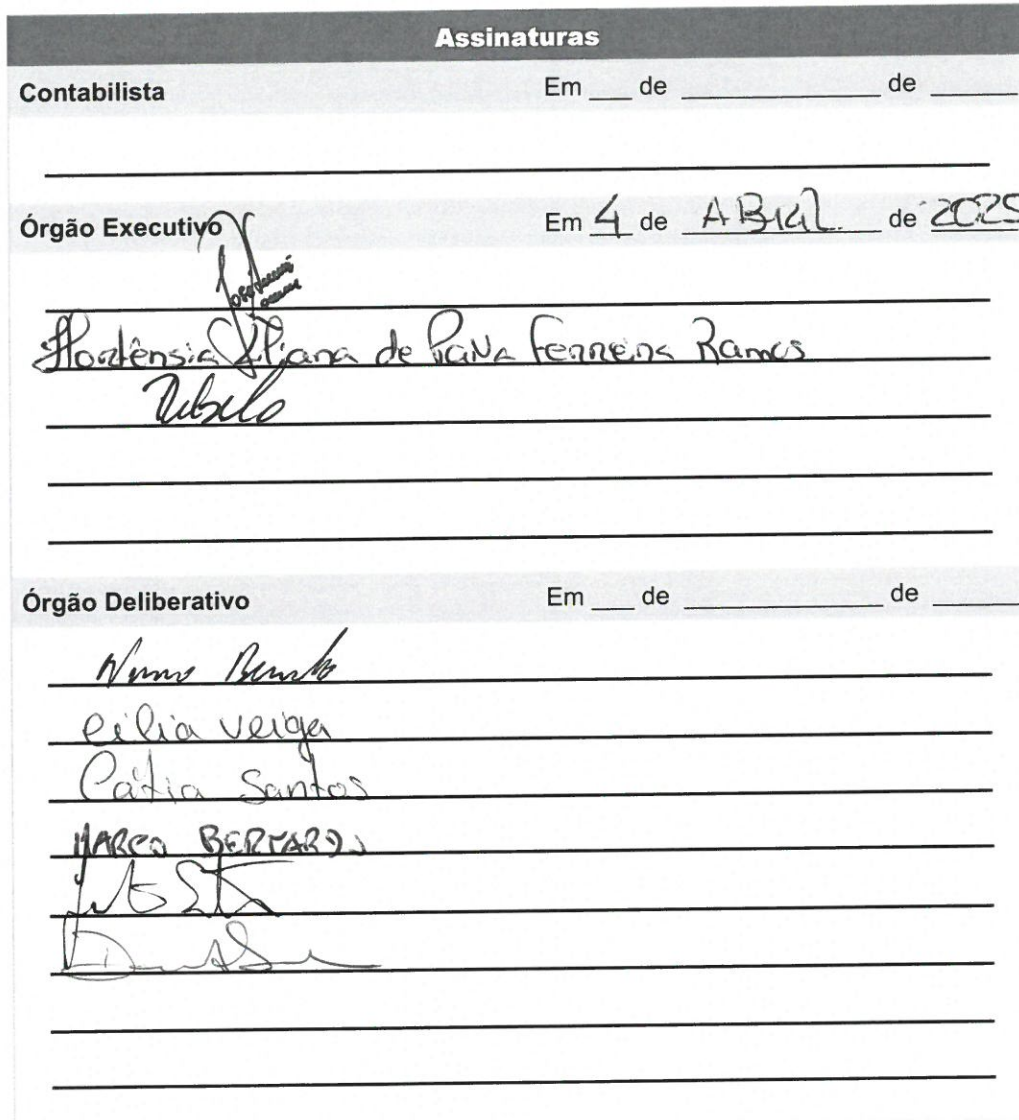 Assinaturas
Contabilista Em ___ de ___ de ___
Órgão Executivo Em 4 de ABRIL de 2025
Hortênsia Liliana de Paiva Ferreira Ramos
Órgão Deliberativo Em ___ de ___ de ___
Nuno
Célia Veiga
Cátia Santos
MARCO BERNARDO